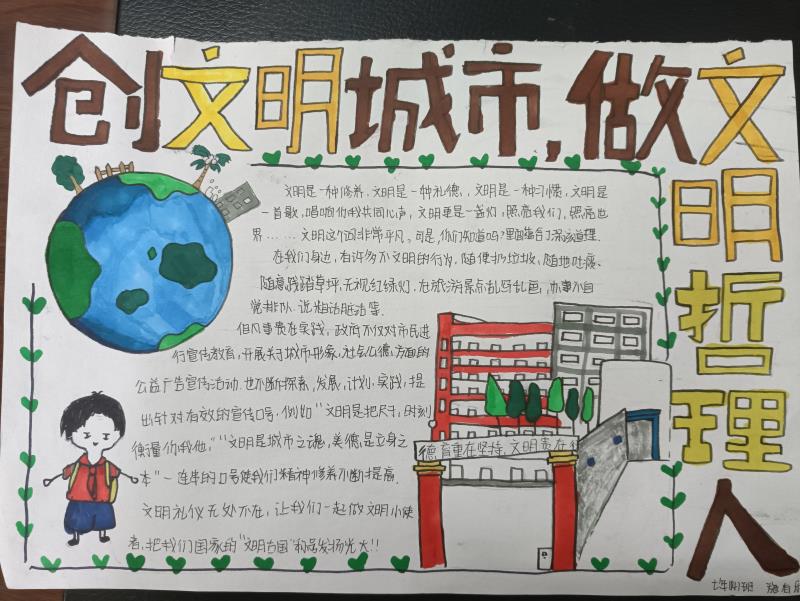 创文明城市,做文明哲理人
文明是一种修养,文明是一种礼德,文明是一种习惯,文明是
一首歌,唱响你我共同心声,文明更是一盏灯,照亮我们,照亮世
界……文明这个词非常平凡。可是,你们知道吗?里面蕴含了深刻道理.
在我们身边,有许多不文明的行为,随便扔垃圾、随地吐痰、
随意践踏草坪、无视红绿灯、在旅游景点乱写乱画,办事不自
觉排队、说粗话脏话等.
但凡事贵在实践,政府不仅对市民进
行宣传教育,开展关于城市形象,社会公德,方面的
公益广告宣传活动.也不断探索,发展,计划,实践,提
出针对有效的宣传口号,例如"文明是把尺子,时刻
衡谨你我他,""文明是城市之魂,美德是立身之
本"一连串的口号使我们精神修养不断提高.
文明礼仪无处不在,让我们一起做文明小使
者,把我们国家的"文明古国"称号发扬光大!!
德育重在坚持,文明贵在
七年 班